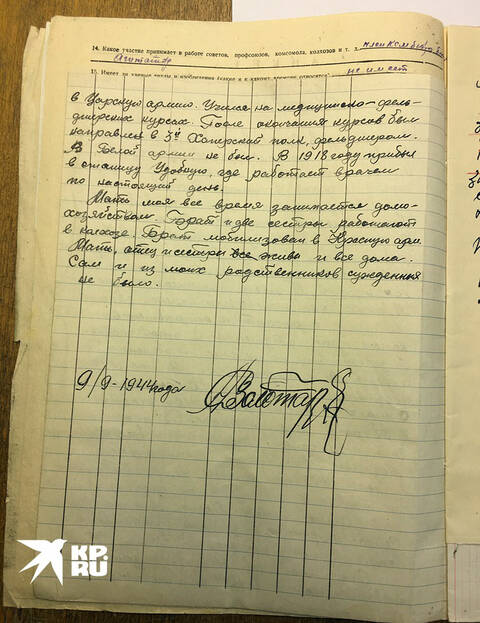 14. Какое участие принимает в работе советов, профсоюзов, комсомола, колхозов и т. д.
Агитатор
15. Имеет ли
не имеет
в Царскую армию. Учился на медицинско-фель-
дшерских курсах. После окончания курсов был
направлен в 3й Хоперский полк, фельдшером.
В Белой армии не был. В 1918 году прибыл
в станицу Удобную, где работает врачем
по настоящий день.
Мать моя все время занимается домо-
хозяйством. Брат и две сестры работают
в колхозе. Брат мобилизован в Красную арм.
Мать, отец и сестры все живы и все дома.
Сам и из моих родственников сужденных
не было.
9/9-1944 года
KP.
RU